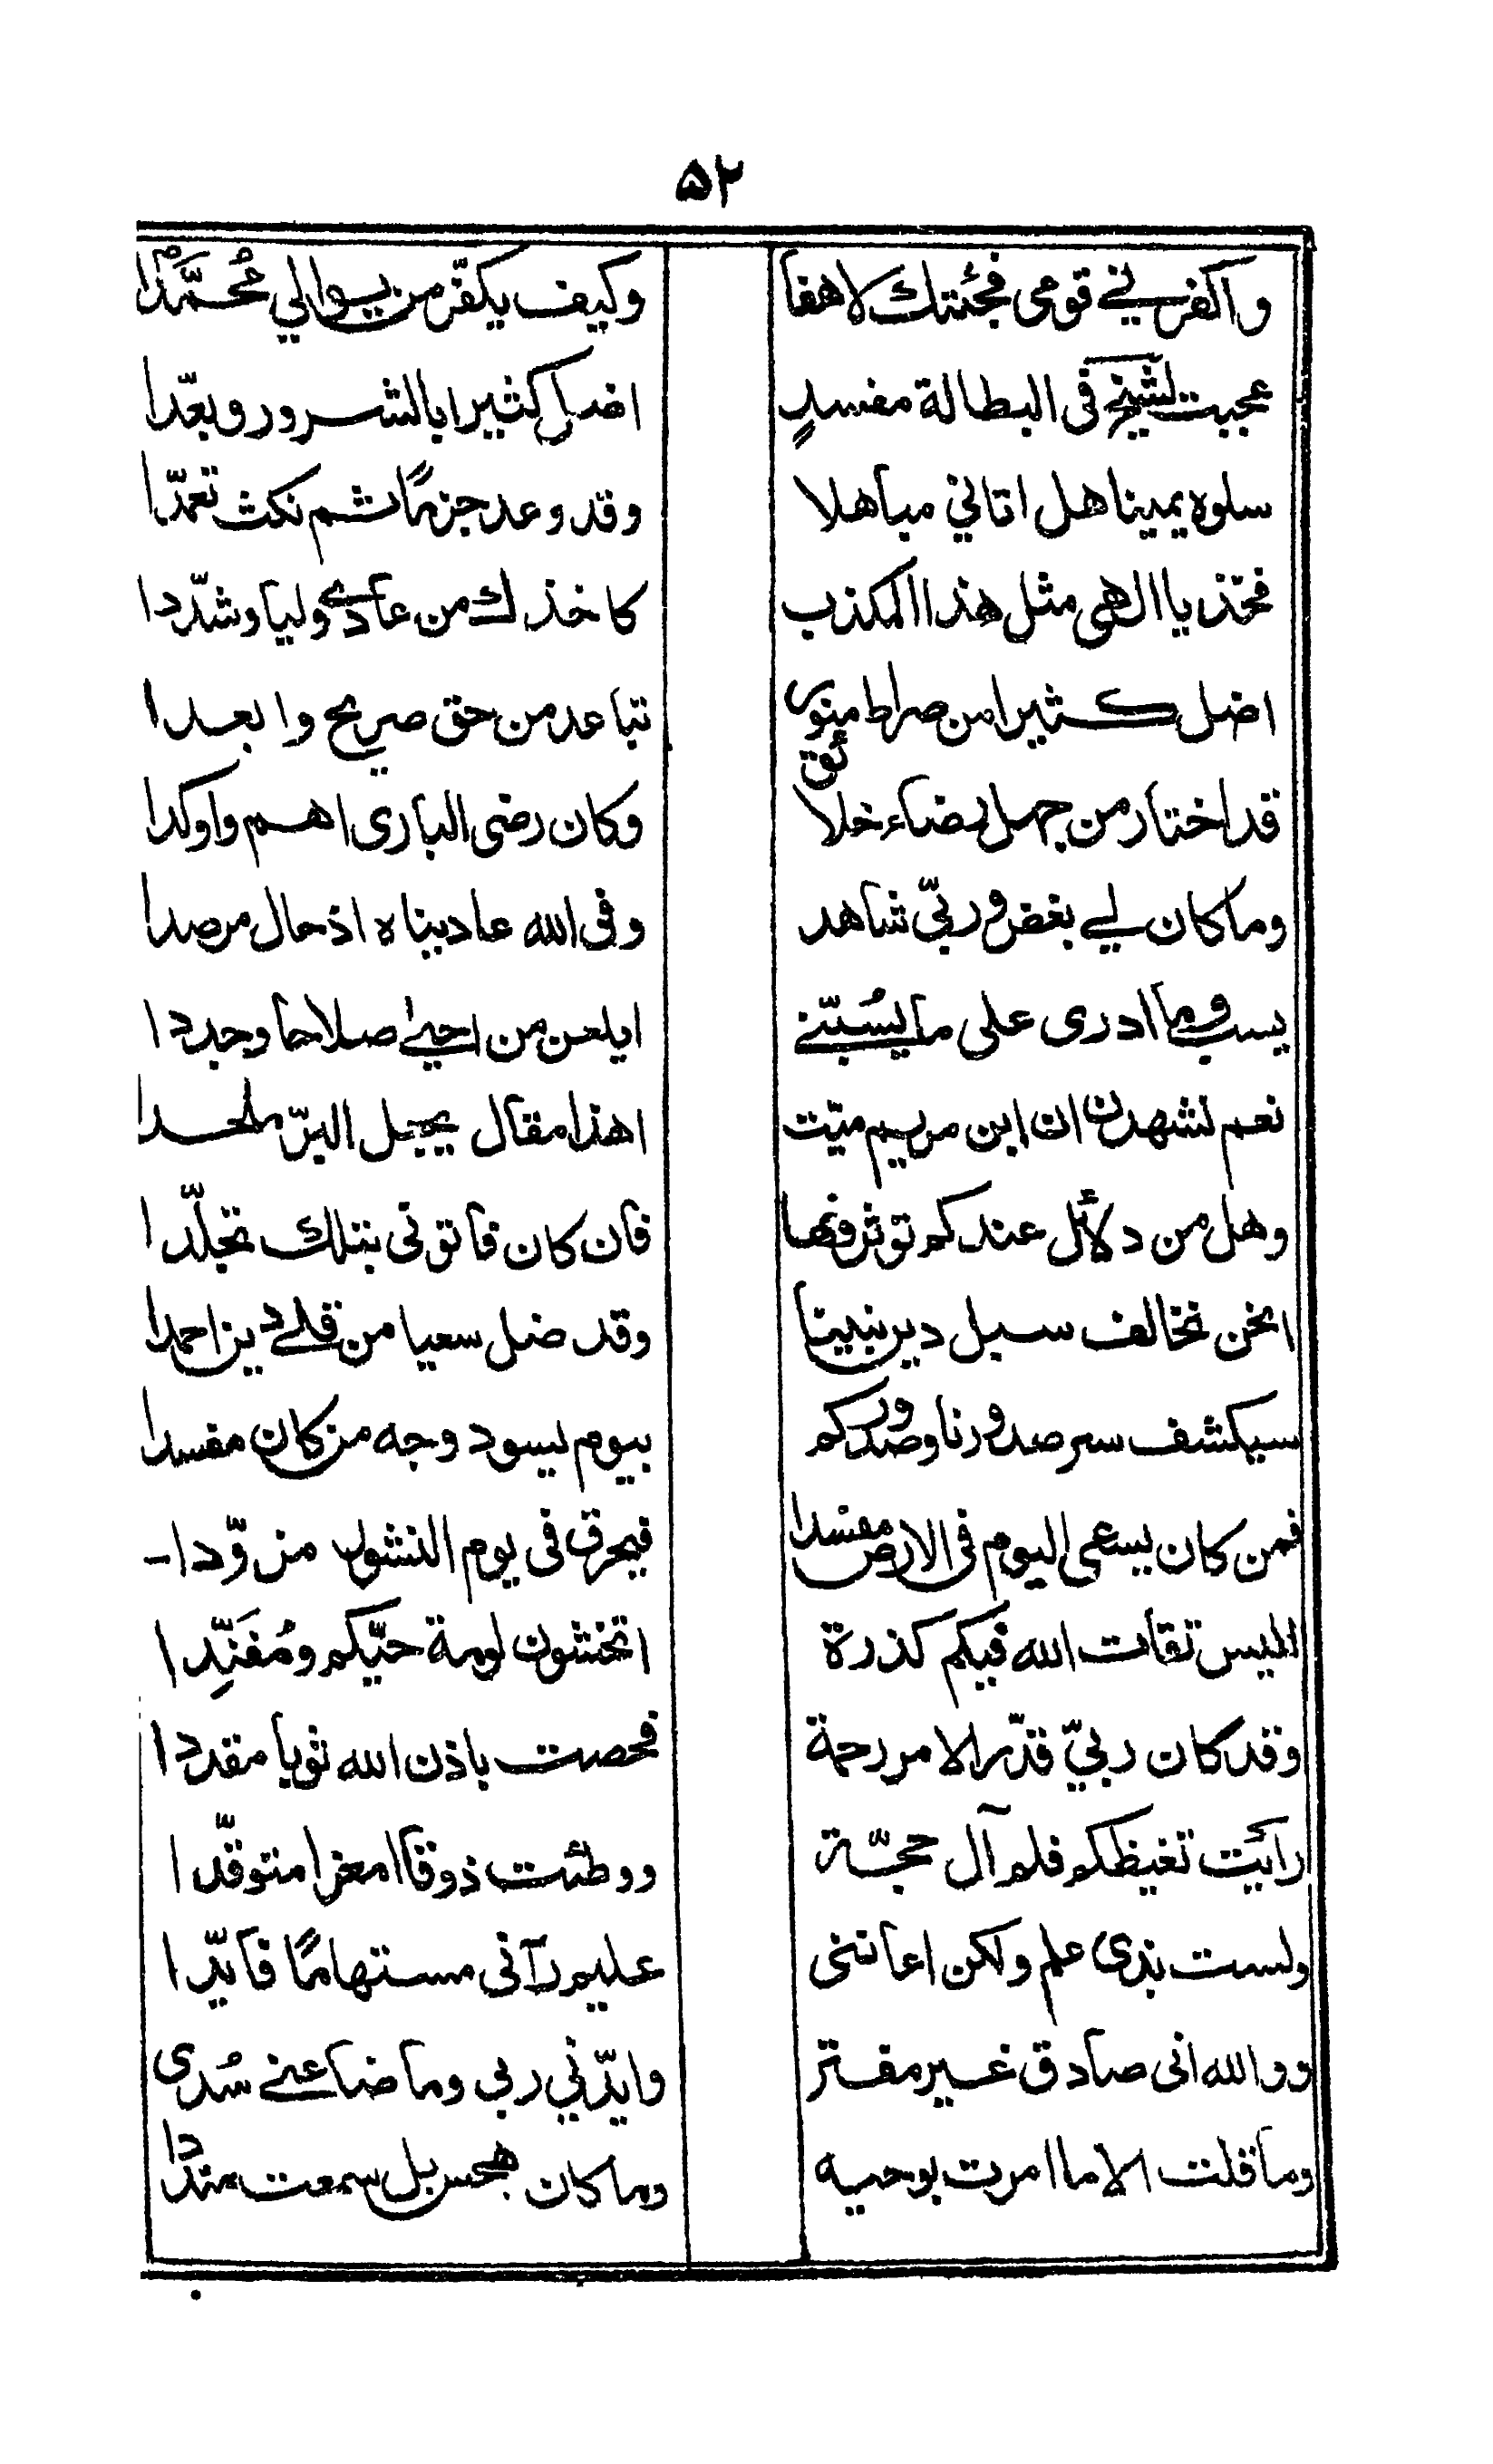 ۵۲
واكفرني قومي فجئتك لاهفا وكيف يكفّر من يوالي مُحمَّدًا
عجبت لشيخ في البطالة مفسدٍ اضل كثيرا بالشرور وبعّدا
سلوه يمينا هل اتاني مباهلا وقد وعد جزمًا ثم نكث تعمّدا
فخذ يا الهي مثل هذا المكذب كاخذك من عادى وليا وشدّدا
اضل كثيرا من صراط منور تباعد من حق صريح وابعدا
قد اختار من جهل رضاء خلائق وكان رضى الباري اهم واوكدا
وما كان لي بغض وربّي شاهد وفي الله عاديناه اذ حال مرصدا
يسب وما ادرى على ما يسُبّني ايلعن من احيى صلاحا وجددا
نعم نشهدن ان ابن مريم ميّت اهذا مقال يجعل البرّ ملحدا
وهل من دلائل عندكم توثرونها فان كان فاتونى بتلك تجلّدا
انحن نخالف سبل دين نبينا وقد ضل سعيا من قلى دين احمدا
سيكشف سر صدورنا وصدوركم بيوم يسود وجه من كان مفسدا
فمن كان يسعى اليوم في الارض مفسدا فيحرق في يوم النشور مزوّدا-
اليس تقات الله فيكم كذرة اتخشون لومة حيّكم ومُفَنِّدا
وقد كان ربيّ قدّر الامر رحمة فحصت باذن الله ثوبا مقددا
رأيت تغيظكم فلم آل حجّة ووطئت ذوقا امعزا متوقّدا
ولست بذى علم ولكن اعاننى عليم رآنى مستهامًا فايّدا
ووالله انى صادق غير مفتر وايّدني ربي وما ضاعني سُدى
وما قلت الا ما امرت بوحيه وما كان هجس بل سمعت منددا